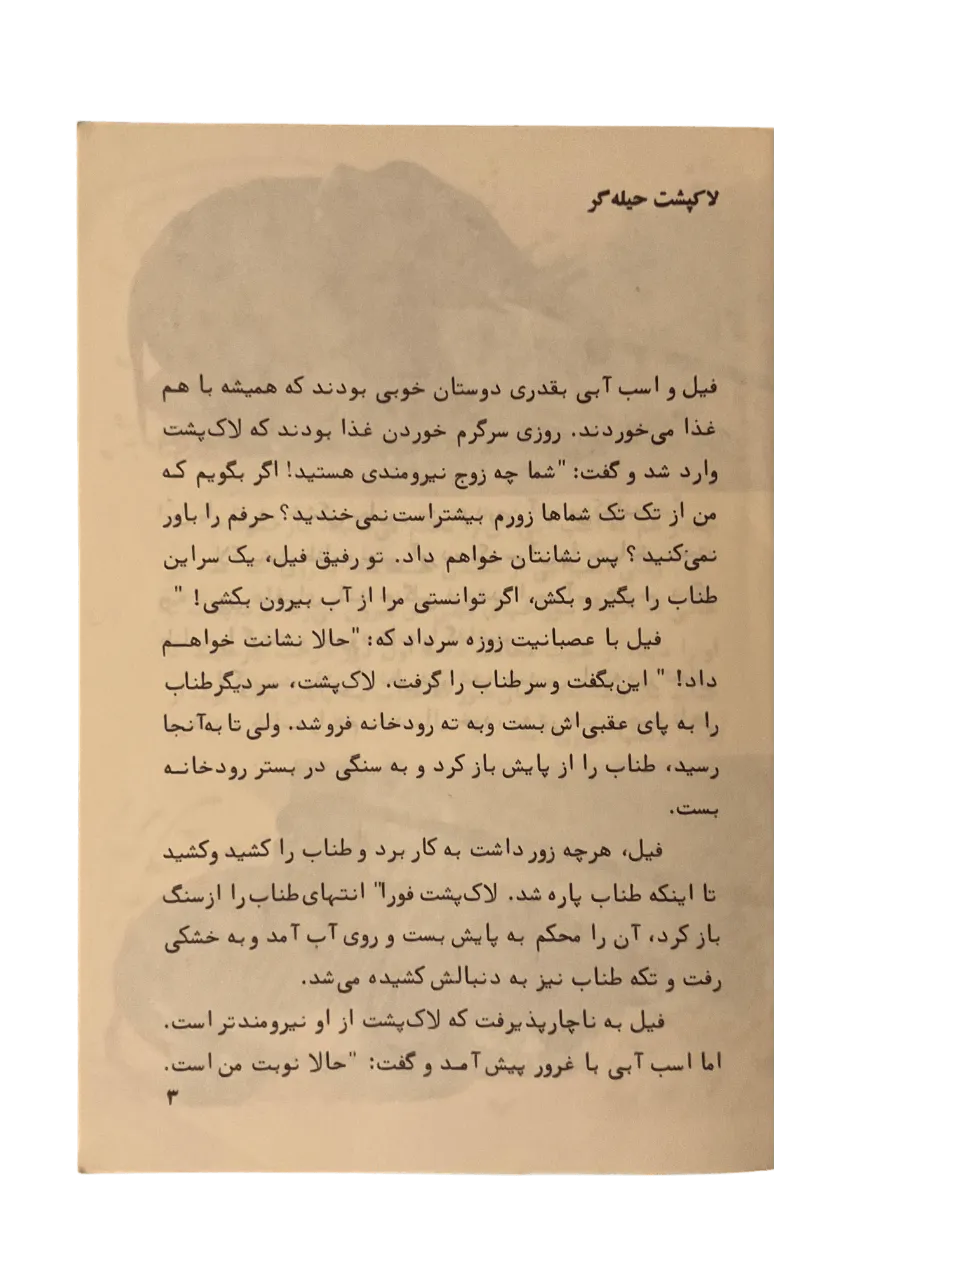 لاکپشت حیله‌گر
فیل و اسب آبی بقدری دوستان خوبی بودند که همیشه با هم
غذا می‌خوردند. روزی سرگرم خوردن غذا بودند که لاک‌پشت
وارد شد و گفت: "شما چه زوج نیرومندی هستید! اگر بگویم که
من از تک تک شماها زورم بیشتراست نمی‌خندید؟ حرفم را باور
نمی‌کنید؟ پس نشانتان خواهم داد. تو رفیق فیل، یک سراین
طناب را بگیر و بکش، اگر توانستی مرا از آب بیرون بکشی! "
فیل با عصبانیت زوزه سرداد که: "حالا نشانت خواهم
داد! " این‌بگفت و سرطناب را گرفت. لاک‌پشت، سر دیگرطناب
را به پای عقبی‌اش بست وبه ته رودخانه فرو شد. ولی تا به‌آنجا
رسید، طناب را از پایش باز کرد و به سنگی در بستر رودخانه
بست.
فیل، هرچه زور داشت به کار برد و طناب را کشید وکشید
تا اینکه طناب پاره شد. لاک‌پشت فورا" انتهای طناب را ازسنگ
باز کرد، آن را محکم به پایش بست و روی آب آمد و به خشکی
رفت و تکه طناب نیز به دنبالش کشیده می‌شد.
فیل به ناچارپذیرفت که لاک‌پشت از او نیرومندتر است.
اما اسب آبی با غرور پیش آمد و گفت: "حالا نوبت من است.
۳